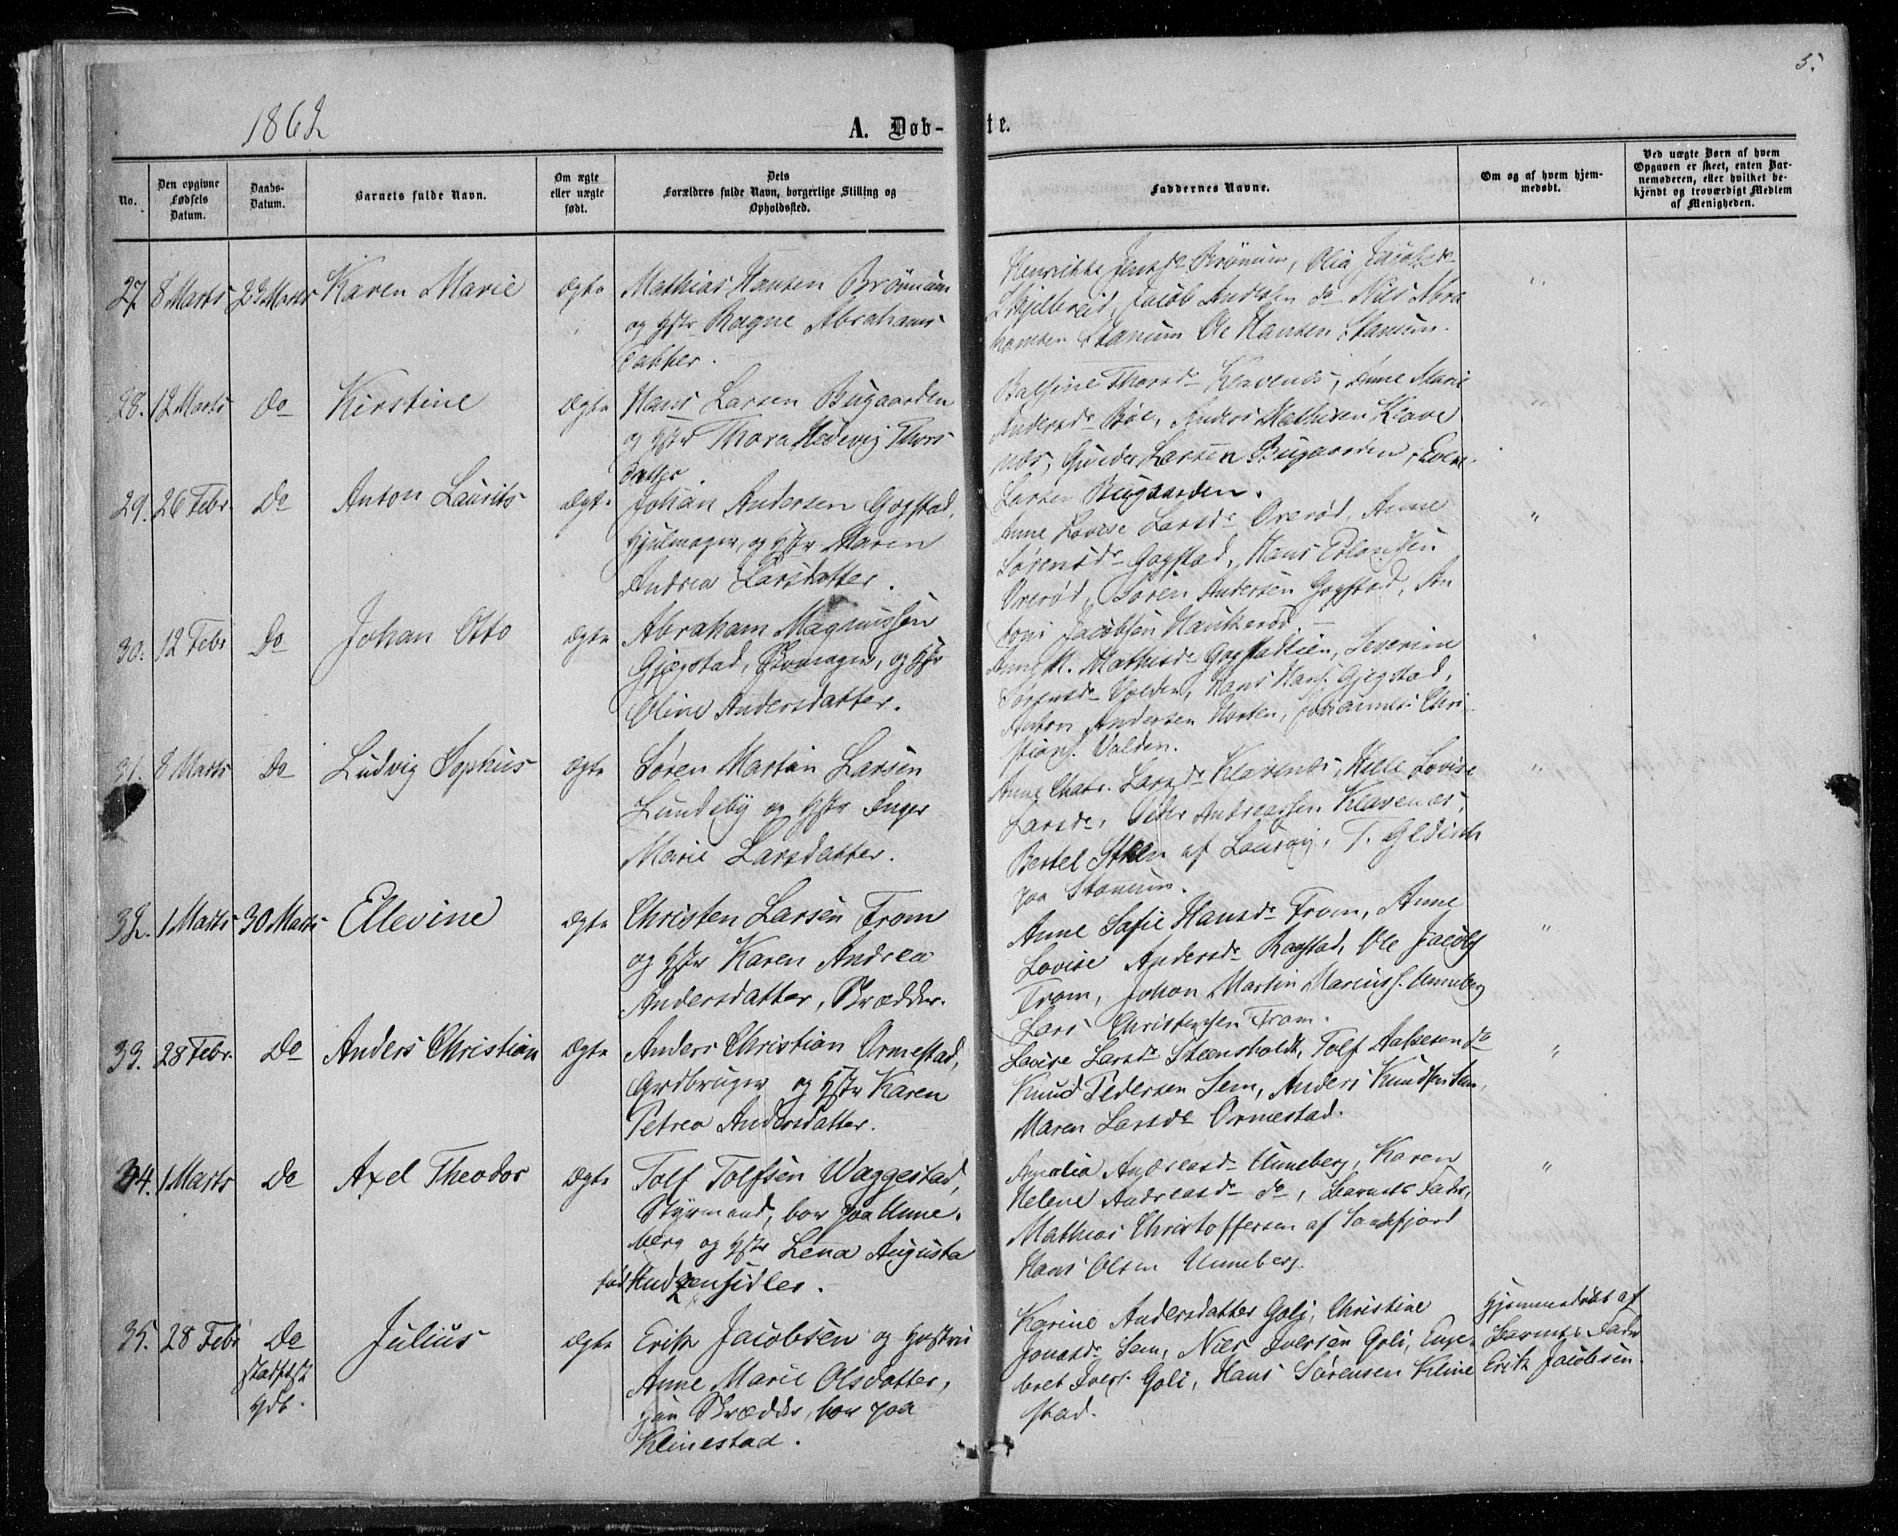 5.
1862
A. Døb-
te.
No.
Den opgivne Fødsels Datum.
Daabs-Datum.
Barnets fulde Navn.
Om ægte eller uægte født.
Dets Forældres fulde Navn, borgerlige Stilling og Opholdssted.
Faddernes Navne.
Om og af hvem hjem-medøbt.
Ved uægte Børn af hvem Opgaven er skeet, enten Bar-nemoderen, eller hvilket be-kjendt og troværdigt Medlem af Menigheden.
27. 8 Marts 23 Marts Karen Marie ægte Mathias Hansen Brønum
og Hstr Ragne Abrahams
datter.
Henrikke Jensdr Brønum, Olia Jacobsdr
Skjelbreid, Jacob Andersen do Nils Abra
hamsen Stanum Ole Hansen Stanum.
"
28. 12 Marts Do Kirstine ægte Hans Larsen Bugaarden
og Hstr Thora Hedevig Thors
datter.
Thorsdr Klavenes, Anne Marie
Andersdr Bøe, Anders Mathisen Klave
næs, Larsen Bugaarden,
Larsen Bugaarden.
"
29. 26 Febr Do Anton Laurits ægte Johan Andersen Gogstad,
Hjulmager, og Hstr Maren
Andrea Larsdatter.
Anne Lovise Larsdr Ørerød, Anne
Sørensdr Gogstad, Hans
Ørerød, Søren Andersen Gogstad, An
ton Jacobsen Haukerød
"
30. 12 Febr Do Johan Otto ægte Abraham Magnussen
Gjegstad, og Hstr
Oline Andersdatter.
M. Mathisdr Gogstadlien, Severine
Sørensdr Volden, Hans Hans. Gjegstad,
Anton Andersen Horten, Johannes Chri
stians. Volden.
"
31. 8 Marts Do Ludvig Sophus ægte Søren Martin Larsen
Lundeby og Hstr Inger
Marie Larsdatter.
Anne Larsdr Klavenes, Helle Lovise
Larsdr, Peder Andreassen Klavenæs,
Bertel af Laurvig, T.
paa Stanum.
"
32. 1 Marts 30 Marts Ellevine ægte Christen Larsen Fram
og Hstr Karen Andrea
Andersdatter, Skrædder.
Anne Sofie Hansdr Fram, Anne
Lovise Andersdr Raastad, Ole Jacobs
Fram, Johan Martin Marcius. Unneberg
Lars Christensen Fram.
"
33. 28 Febr. Do Anders Christian ægte Anders Christian Ormestad,
Grdbruger og Hstr Karen
Petrea Andersdatter.
Lovise Larsdr Steensholdt, Tolf Aakesen do
Knud Pedersen Sem, Anders Knudsen Sem,
Maren Larsdr Ormestad.
"
34. 1 Marts Do Axel Theodor ægte Tolf Tolfsen Waggestad,
Styrmand, bor paa Unne-
berg og Hstr Lena Augusta
født
Amalia Andreasdr Unneberg, Karen
Helene Andreasdr do, Barnets Fader,
Mathias Christoffersen af Sandefjord
Hans Olsen Unneberg.
"
35. 28 Febr Do Julius ægte Erik Jacobsen og Hustru
stadfæst
Hdb.
Anne Marie Olsdatter,
Han Skrædder, bor paa
Klinestad.
Karine Andersdatter Goli, Christine
Jonasdr Sem, Nils Iversen Goli, Enge
bret Ivers. Goli, Hans Sørensen Kline
stad.
Hjemmedøbt af
Barnets Fader
Erik Jacobsen.